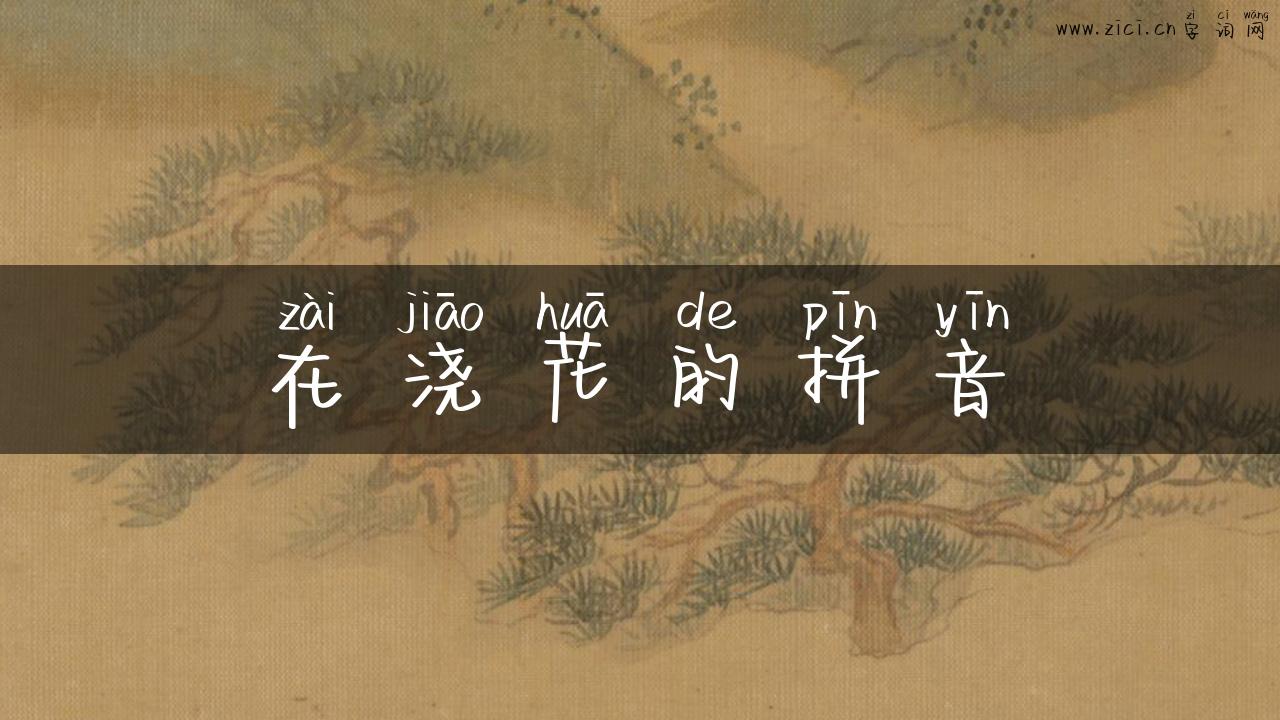 zì cí wǎng
www.zici.cn 字 词 网
zài jiāo huā de pīn yīn
在 浇 花 的 拼 音